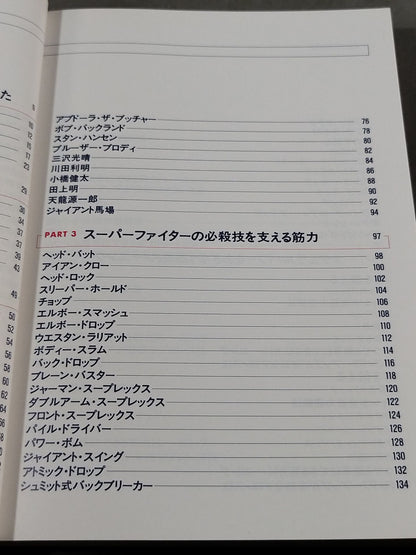 た
6
10
12
15
17
23
29
29
37
37
43
43
46
49
56
50
52
54
56
58
60
62
64
66
68
70
72
アブドーラ・ザ・ブッチャー 76
ボブ・バックランド 78
スタン・ハンセン 80
ブルーザー・ブロディ 82
三沢光晴 84
川田利明 86
小橋健太 88
田上明 90
天龍源一郎 92
ジャイアント馬場 94
PART 3 スーパーファイターの必殺技を支える筋力 97
ヘッド・バット 98
アイアン・クロー 100
ヘッド・ロック 102
スリーパー・ホールド 104
チョップ 106
エルボー・スマッシュ 108
エルボー・ドロップ 110
ウエスタン・ラリアット 112
ボディー・スラム 114
バック・ドロップ 116
ブレーン・バスター 118
ジャーマン・スープレックス 120
ダブルアーム・スープレックス 122
フロント・スープレックス 124
パイル・ドライバー 126
パワー・ボム 128
ジャイアント・スイング 130
アトミック・ドロップ 132
シュミット式バックブリーカー 134